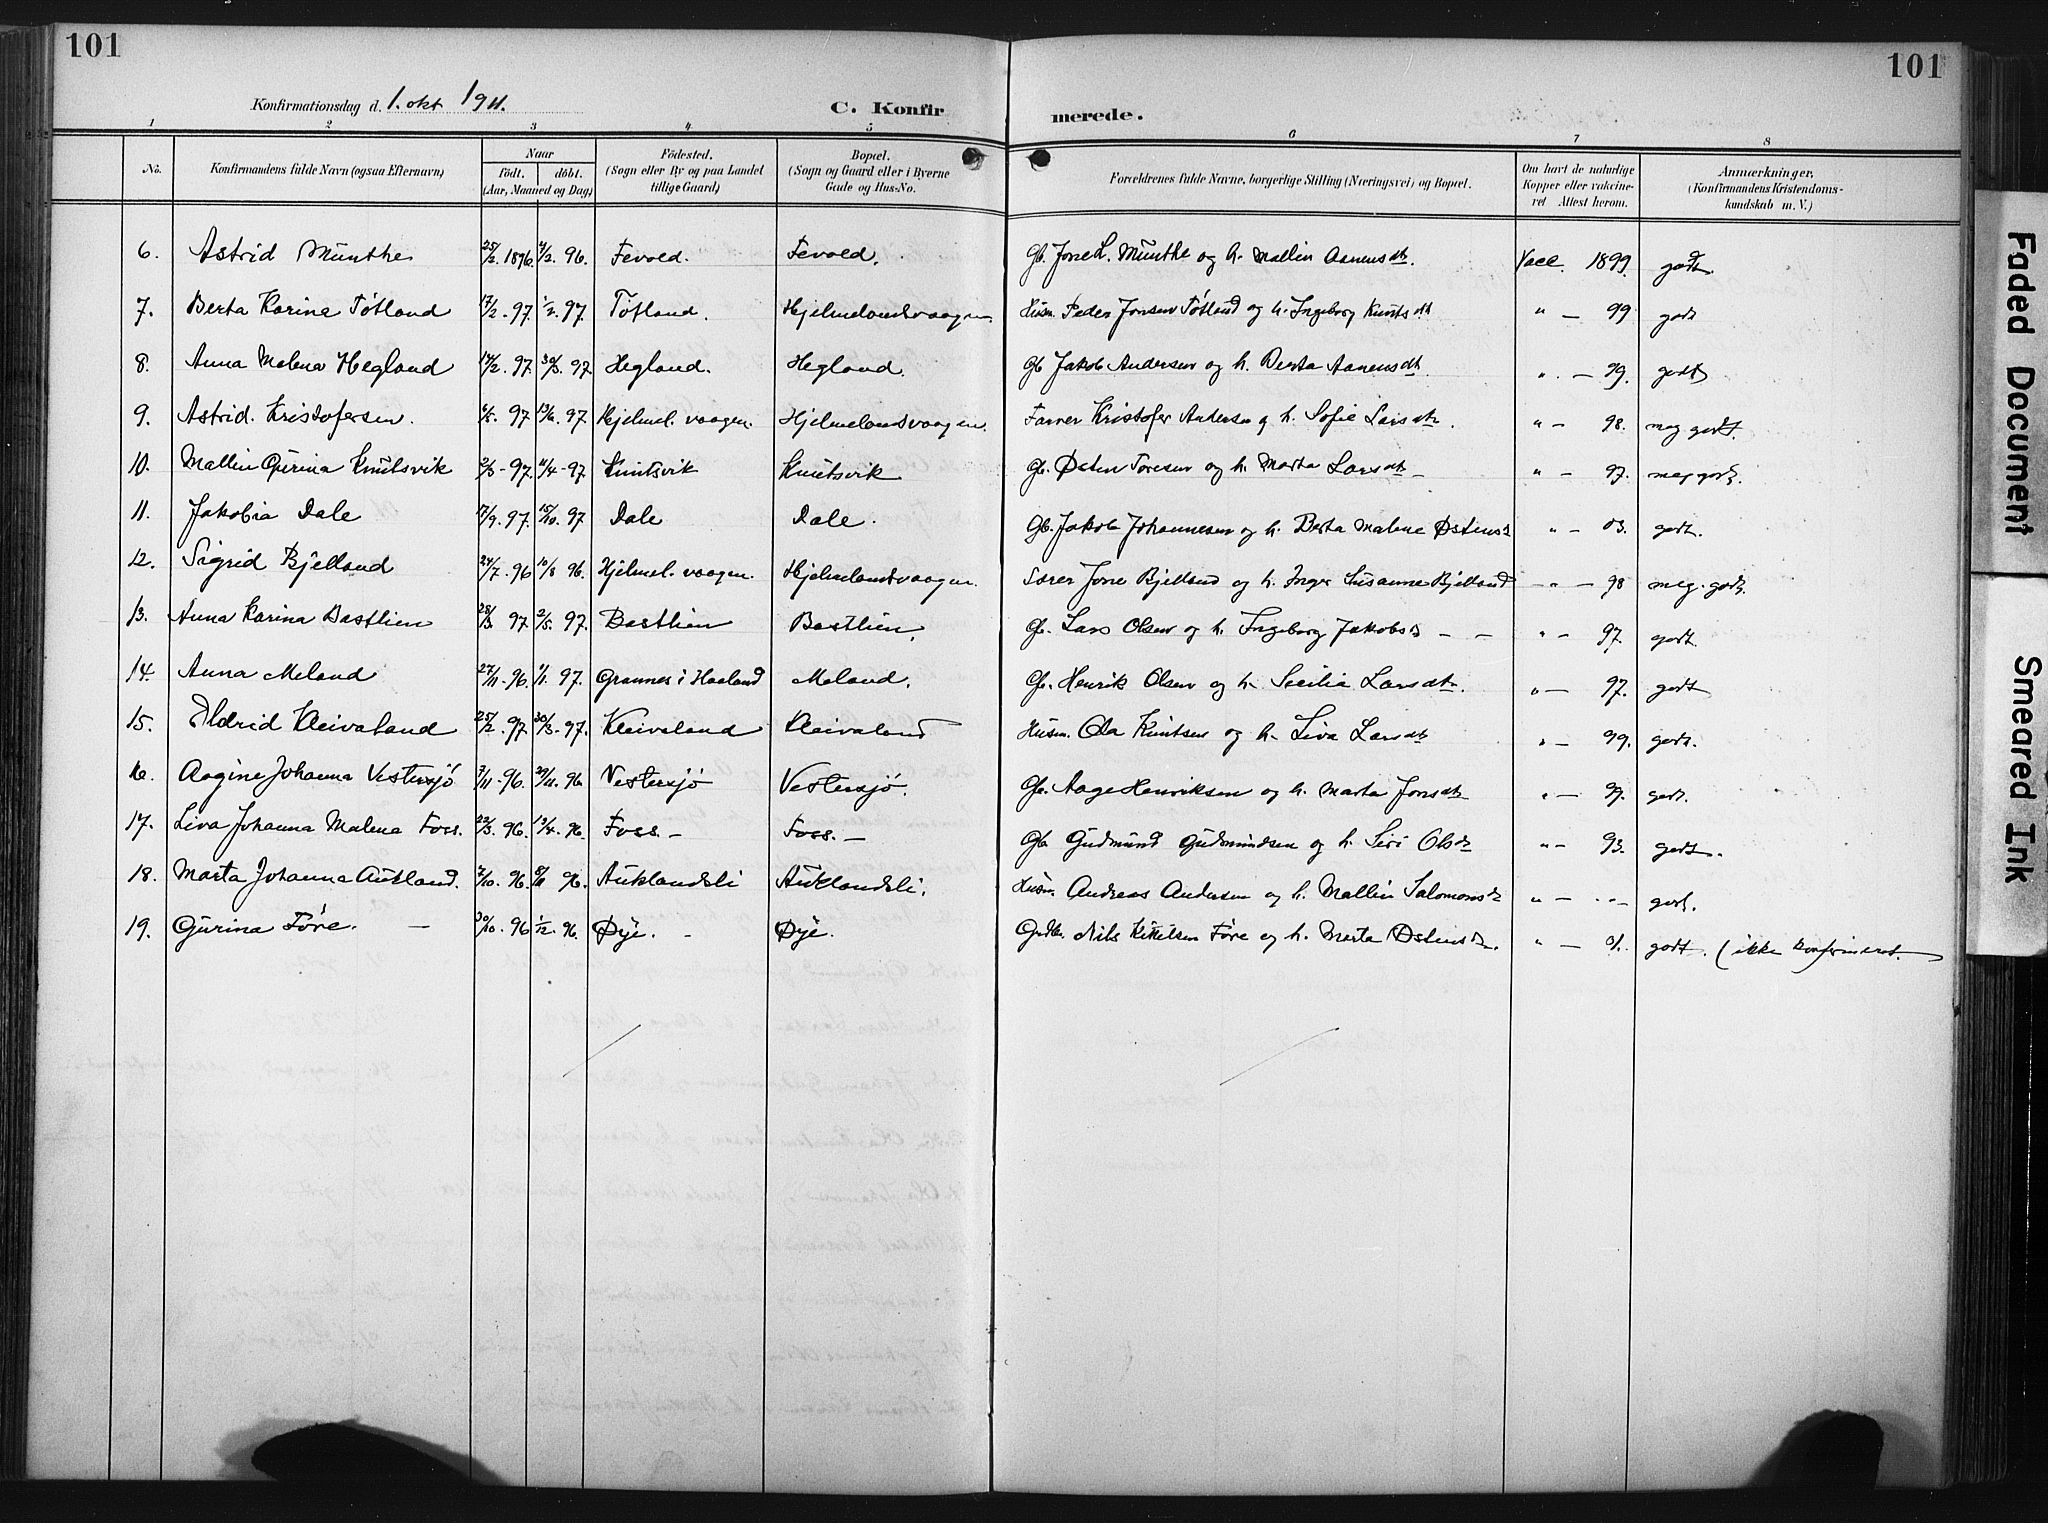 101
101
Konfirmationsdag d. 1. okt 1911.
C. Konfir
merede.
1 2 3 4 5 6 7 8
No.
Konfirmandens fulde Navn (ogsaa Efternavn)
Naar
födt. döbt.
(Aar, Maaned og Dag)
Födested.
(Sogn eller By og paa Landet
tillige Gaard)
Bopæl.
(Sogn og Gaard eller i Byerne
Gade og Hus-No.
Forældrenes fulde Navne, borgerlige Stilling (Næringsvei) og Bopæl.
Om havt de naturlige
Kopper eller vakcine-
ret Attest herom.
Anmærkninger.
(Konfirmandens Kristendoms-
kundskab m. V.)
6. Astrid Munthe 25/2. 1896. 96. Fevold. Fevold. Gb. Jone L. Munthe og h. Mallin Aanensdt. Vacc. 1899. godt.
7. Berta Karina Tøtland 17/2. 97. 97. Tøtland. Hjelmelandsvaagen. Husm. Peder Jonsen Tøtland og h. Ingeborg Knutsdt " — 99 godt
8. Anna Malena Hegland 14/2. 97. 30/3. 97 Hegland. Hegland. Gb Jakob Andersen og h. Berta Aanensdt. " — 99. godt
9. Astrid. Kristofersen. 97 13/6. 97. Hjelmel. vaagen. Hjelmelandsvaagen. Farver Kristofer Andersen og h. Sofie Larsdtr. " — 98. meg godt.
10. Mallin Gurina Knutsvik 2/3 - 97. 11/4 - 97 Knutsvik Knutsvik Gb. Østen Toresen og h. Marta Larsdtr — " — 97. meg godt.
11. Jakobia Dale 17/9. 97. 15/10. 97 Dale Dale. Gb. Jakob Johannesen og h. Berta Malene Østensdt " — 03. godt.
12. Sigrid Bjelland 24/7. 96 10/8 96. Hjelmel. vaagen. Hjelmelandsvaagen. Jone Bjelland og h. Inger Susanne Bjelland " — 98 meg. godt.
13. Anna Karina Bastlien 28/3. 97 2/5. 97. Bastlien Bastlien. Gb. Lars Olsen og h. Ingeborg Jakobsdt — — " — 97. godt
14. Anna Meland 27/11 - 96. 1/1. 97. Grannes i Haaland Meland. Gb. Henrik Olsen og h. Secilia Larsdtr. " — 97. godt
15. Eldrid Kleivaland 25/2. 97. 30/3. 97. Kleivaland Kleivaland Husm. Ola Knutsen og h. Liva Larsdt " — 99. godt.
16. Aagine Johanna Vestersjö 7/11 - 96. 29/11. 96. Vestersjö Vestersjö. Gb. Aage Henriksen og h. Marta Jonsdtr " — 97. godt.
17. Liva Johanna Malena Foss. 22/3. 96. 13/4. 96. Foss. — Foss. — Gb Gudmund Gudmundsen og h. Siri Olsdtr " — 93. godt.
18. Marta Johanna Aukland. 2/10. 96. 8/11 96. Auklandsli Auklandsli. Husm. Andreas Andersen og h. Mallin Salomonsdt " — " — godt.
19. Gurina Føre. — 30/10. 96 1/12. 96. Øye. — Øye. Gadbr. Nils Kittelsen Føre og h. Marta Østensdtr. " — 01. godt. (ikke konfirmeret.
Faded Document
Smeared Ink